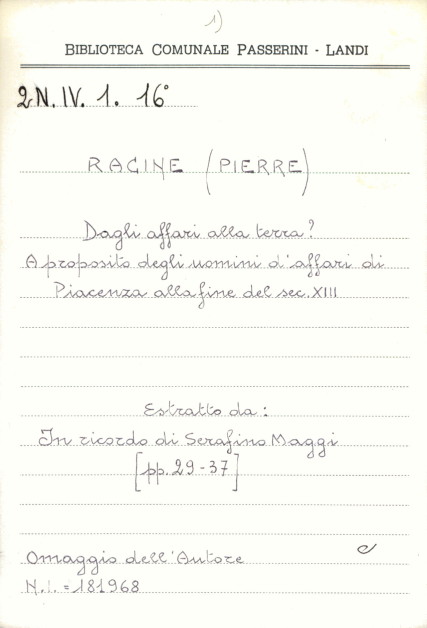 1)
BIBLIOTECA COMUNALE PASSERINI - LANDI
2N. IV. 1. 16°
RACINE (PIERRE)
Dagli affari alla terra?
A proposito degli uomini d'affari di
Piacenza alla fine del sec. XIII
Estratto da:
In ricordo di Serafino Maggi
[pp. 29-37]
Omaggio dell'Autore
N.i. = 181968